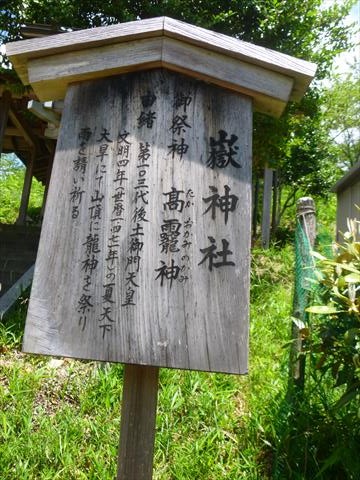 嶽神社
御祭神 高龗神
たか おかみ のかみ
由緒 第一〇三代後土御門天皇
文明四年(世暦一四七一年)の夏天下
大旱にて山頂に龍神を祭り
雨を請い祈る